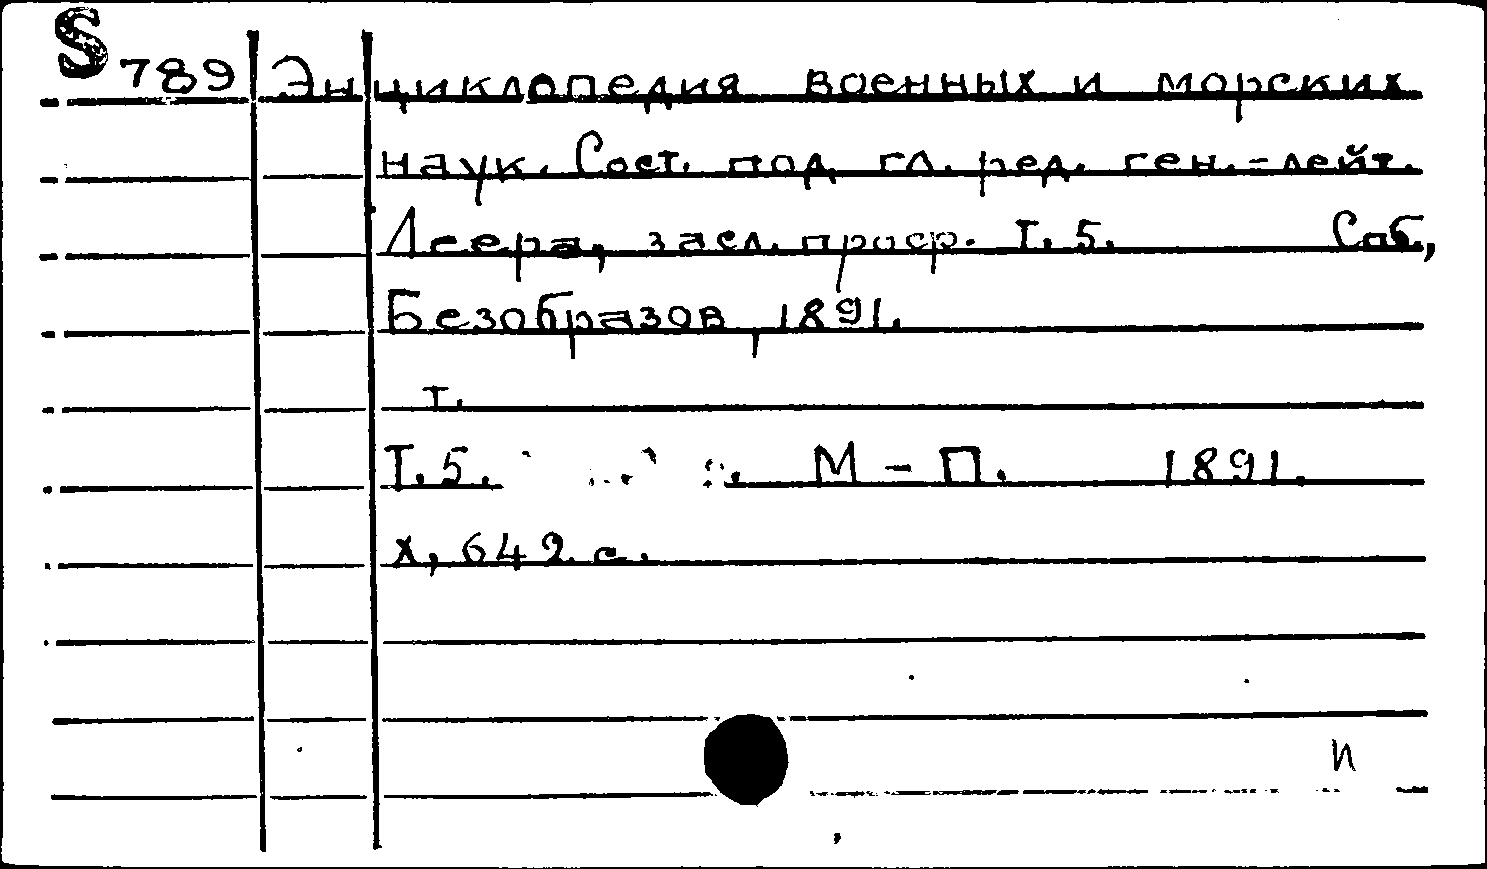 S 789 Энциклопедия военных и морских
наук. Сост. под гл. ред. ген.-лейт.
Леера, засл. проф. Т. 5. Спб.,
Безобразов, 1891.
т.
Т. 5. М – П. 1891.
X, 642 с.
и